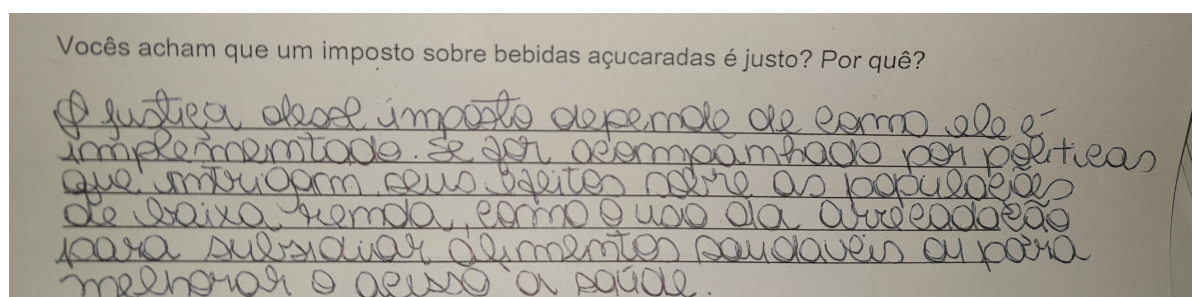 Vocês acham que um imposto sobre bebidas açucaradas é justo? Por quê?
A justiça desse imposto depende de como ele é
implementado. Se for acompanhado por políticas
que mitrigam seus efeitos sobre as populações
de baixa renda, como o uso da arrecadação
para subsidiar alimentos saudaveis ou para
melhorar o acesso à saúde.